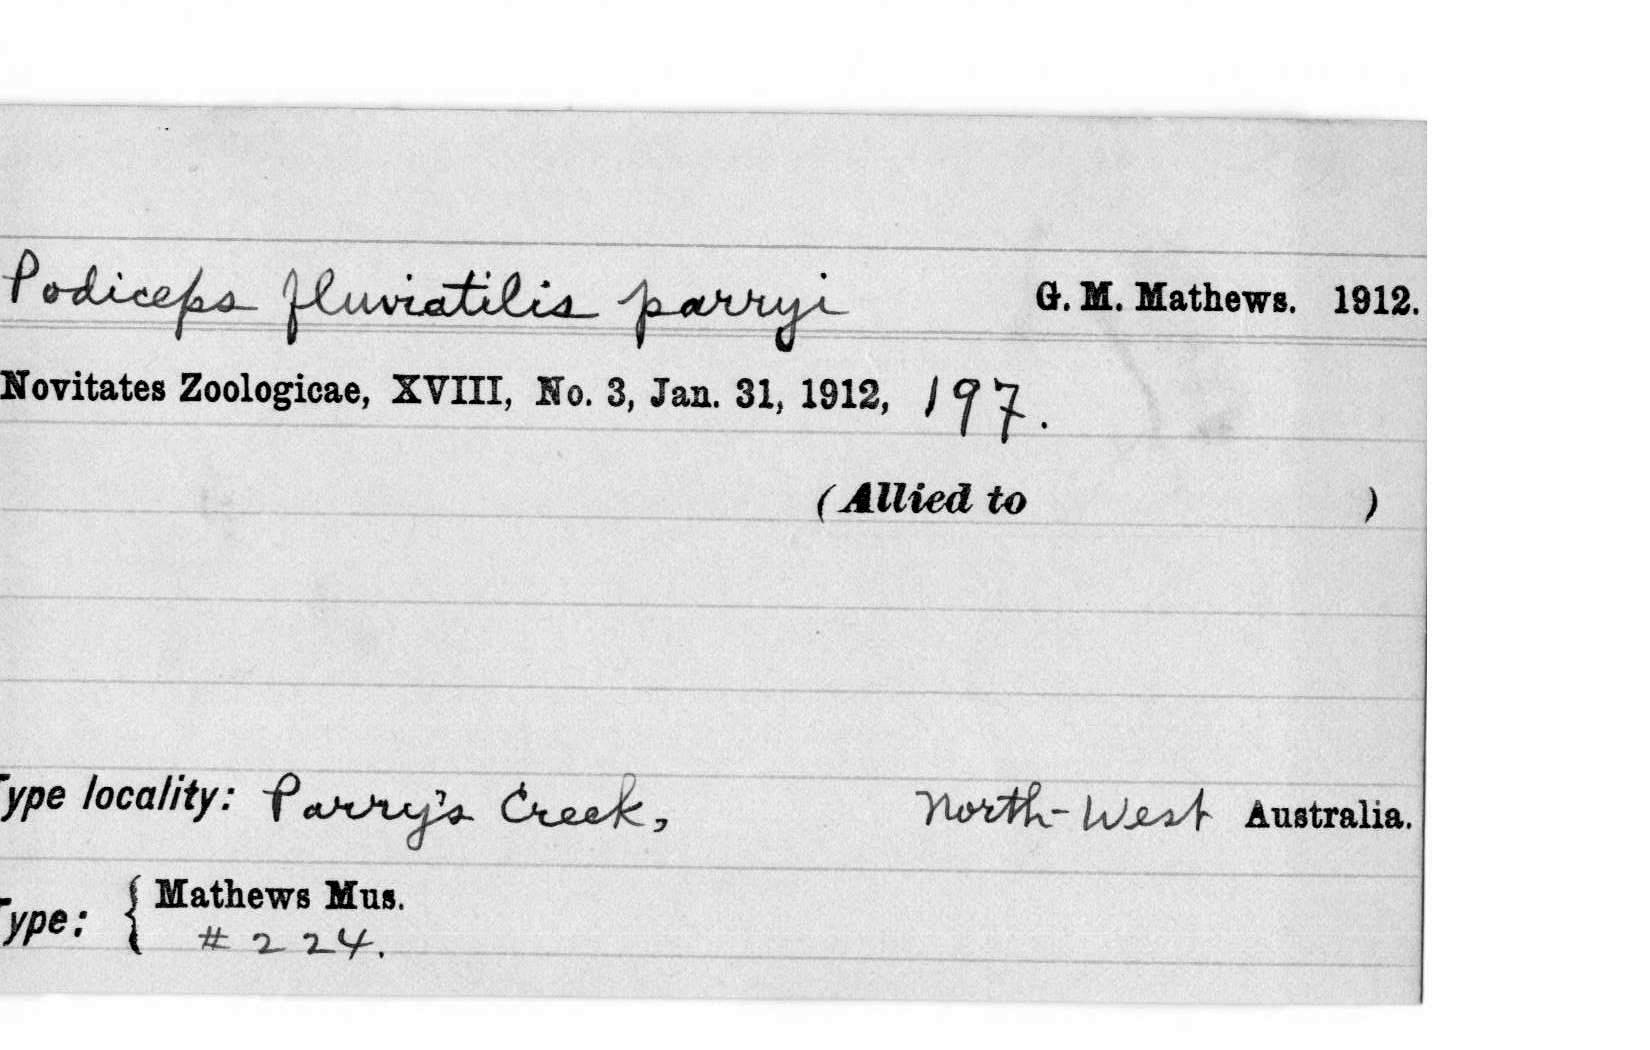 Podiceps fluviatilis parryi G. M. Mathews. 1912.
Novitates Zoologicae, XVIII, No. 3, Jan. 31, 1912, 197.
(Allied to )
Type locality: Parry's Creek, North-West Australia.
Type: { Mathews Mus.
# 224.